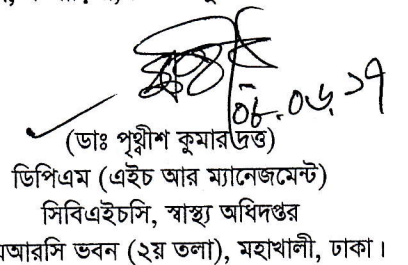 ০৮.০৬.১৭
(ডাঃ পৃথ্বীশ কুমার দত্ত)
ডিপিএম (এইচ আর ম্যানেজমেন্ট)
সিবিএইচসি, স্বাস্থ্য অধিদপ্তর
এমআরসি ভবন (২য় তলা), মহাখালী, ঢাকা।